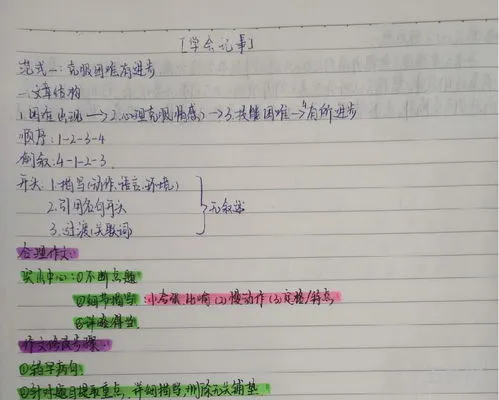 [学会记事]
范式一:克服困难有进步
一、文章结构
1.困难出现→2.心理克服(情感)→3.技能困难→4有所进步
顺序:1-2-3-4
倒叙:4-1-2-3.
开头:1.描写(动作、语言、环境)
2.引用名句开头
3.过渡(关联词)
合理作文:
突出中心:①不断点题
②细节描写:(2)慢动作(3)
③详略得当
作文修改步骤:
①错字病句
②针对题目提取重点,详细描写,删除无关铺垫